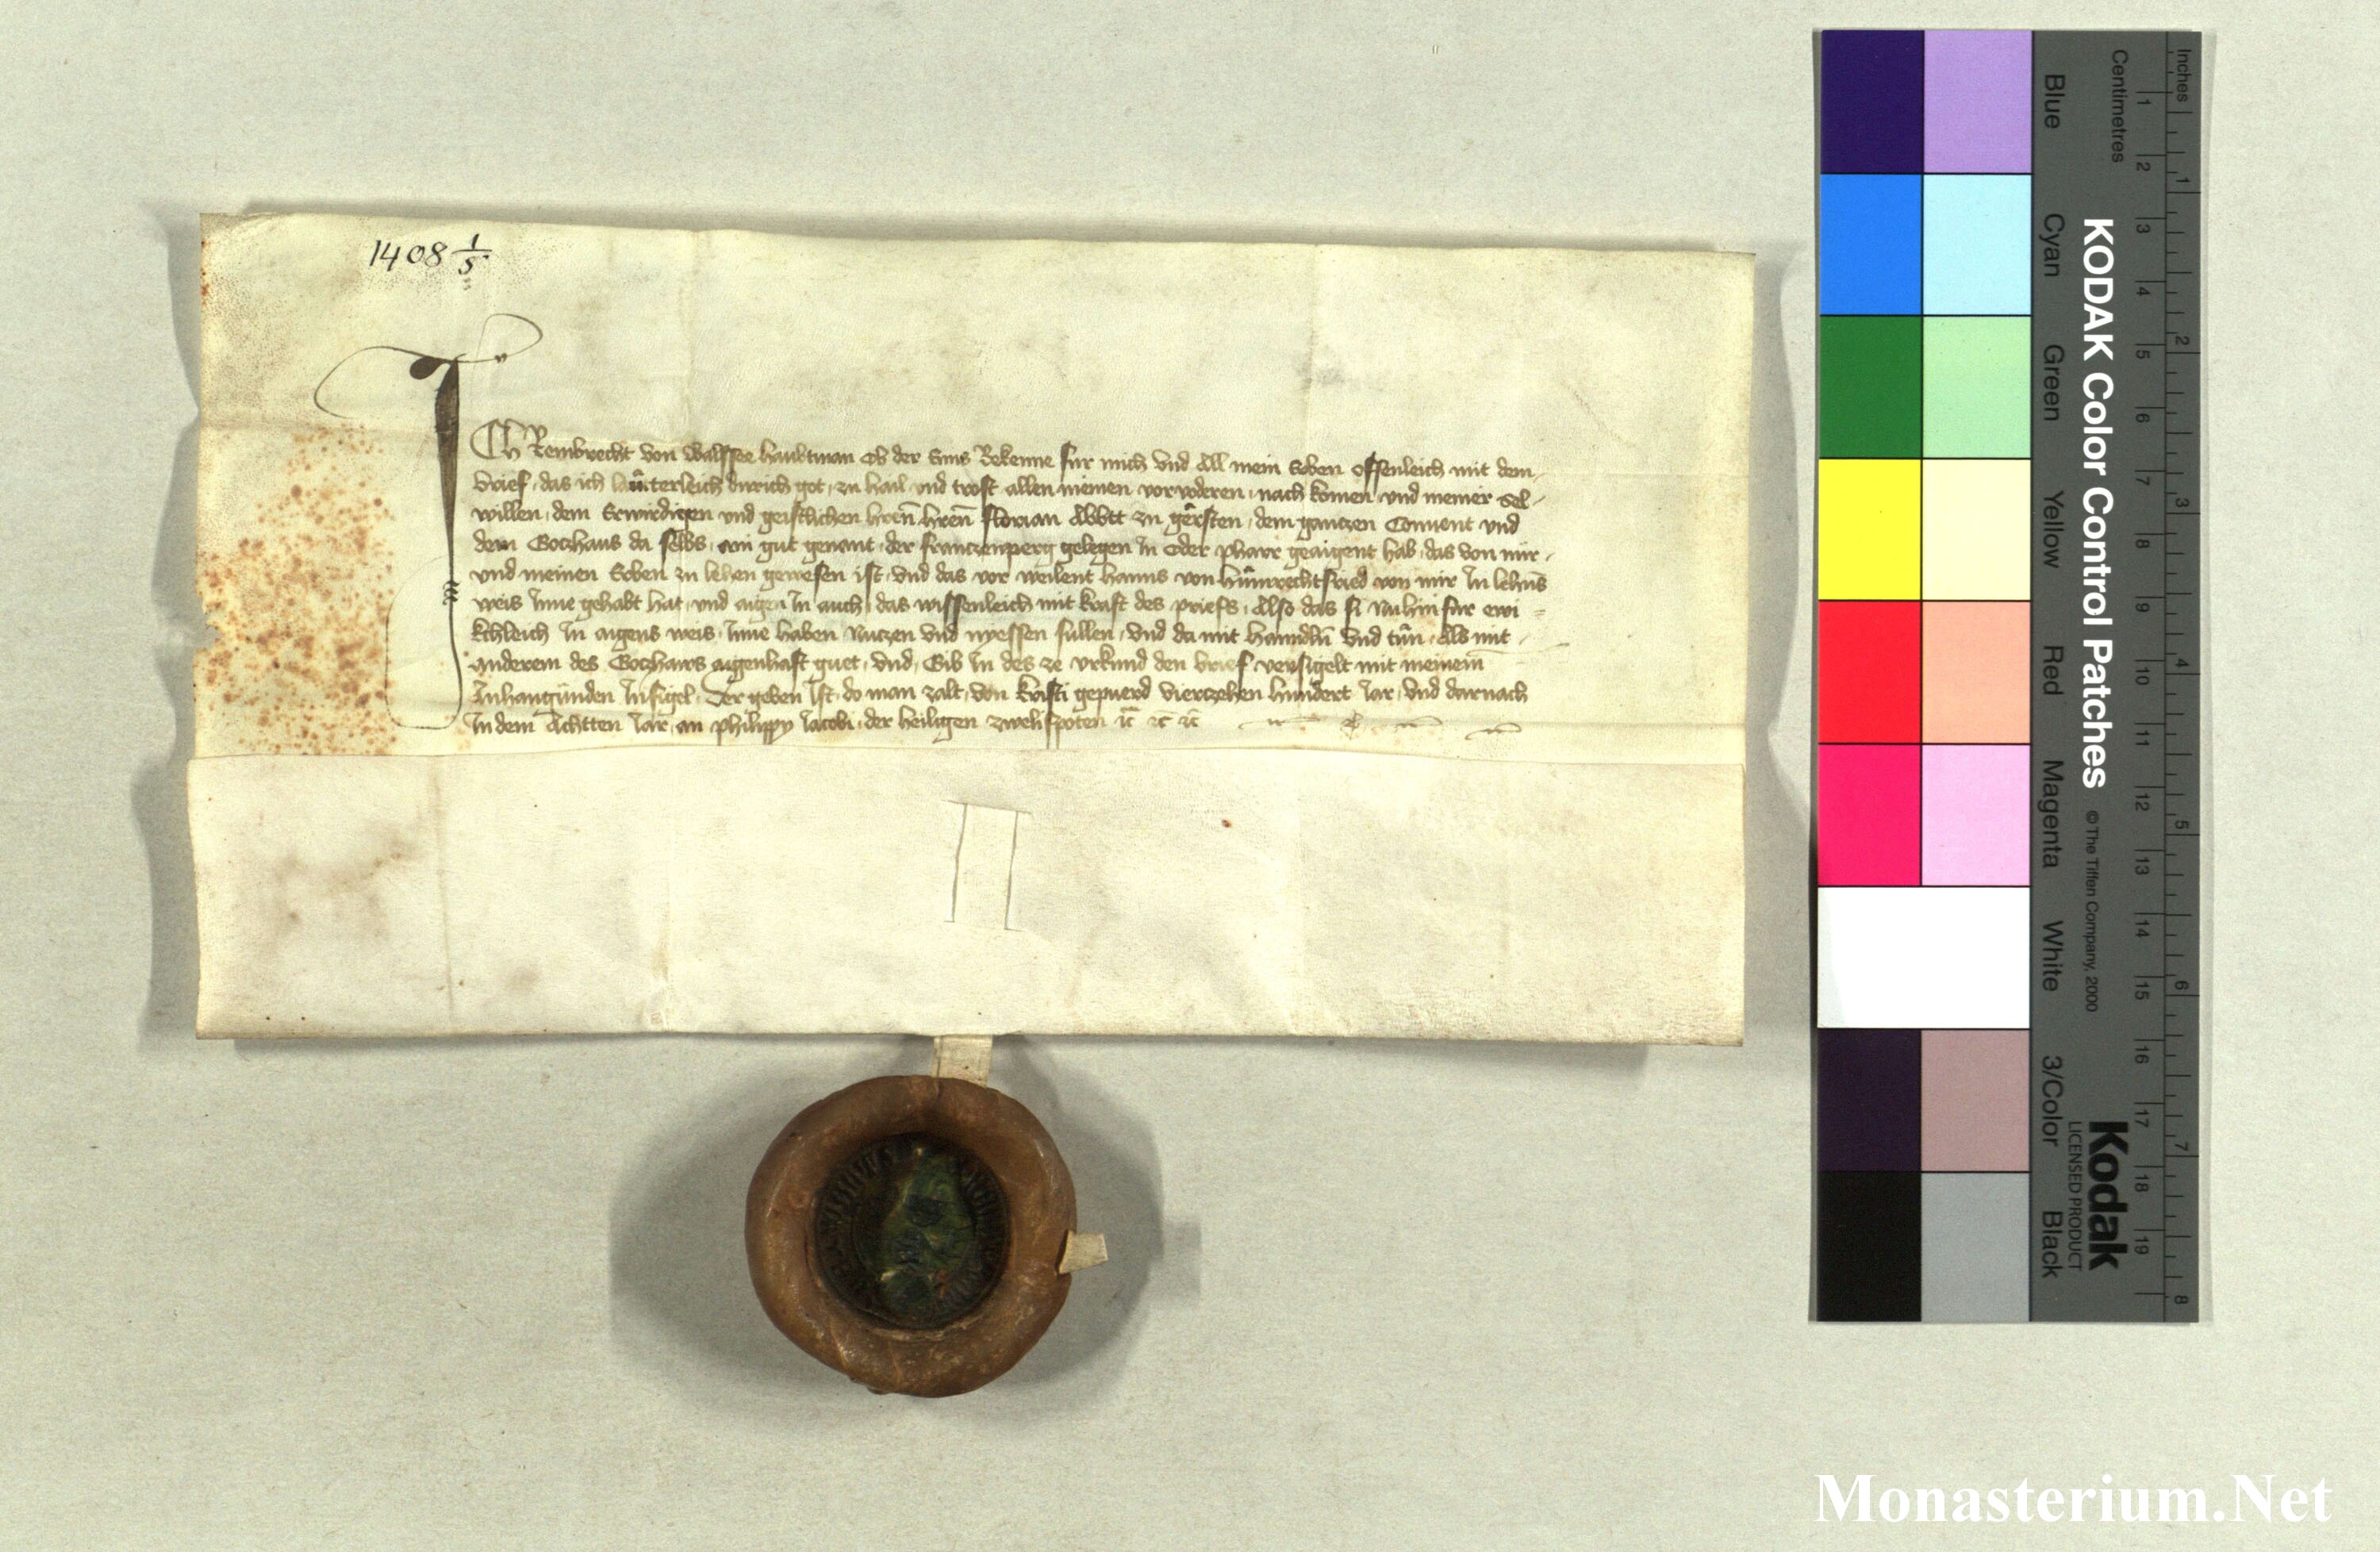 1408 1/5
ICh Rembrecht von Walssee haubtman Ob der Enns Bekenne fur mich vnd All mein Erben offenleich mit dem
brief, das ich lauterleich durich got, zu hail vnd trost allen meinen vorvoderen, nach komen vnd meiner Sel
willen, dem Erwirdigen vnd geistlichen hren̄ hren̄ florian Abbtt zu gersten, dem ganczen Conuent vnd
dem Goczhaus da selbs, ein gut genant, der franczenperg gelegen In Oder pharr geaigent hab, das von mir
vnd meinen Erben zu lehen gewesen ist, vnd das vor weilent hanns von von mir In lehns
weis Inne gehabt hat, vnd aigen In auch, das wissenleich mit kraft des priefs, Also das si Nuhinfur ewi
kchleich In aigens weis, Inne haben Nuczen vnd nyessen sullen, vnd da mit hanndln̄ vnd tun, Als mit
anderem des Goczhaws aigenhaft guet, vnd, Gib In des ze vrkund den brief versigelt mit meinem
Inhangunden Insigel, Der geben Ist, do man zalt, von kristi gepuerd vierczehen hundert Iar, vnd darnach
In dem Achtten Iar, an philippy Iacobi, der heiligen zwelifpoten
Inches
Centimetres
1 2 3 4 5 6 7 8 9 10 11 12 13 14 15 16 17 18 19
1 2 3 4 5 6 7 8
KODAK Color Control Patches
© The Tiffen Company, 2000
Kodak
LICENSED PRODUCT
Blue
Cyan
Green
Yellow
Red
Magenta
White
3/Color
Black
Monasterium.Net